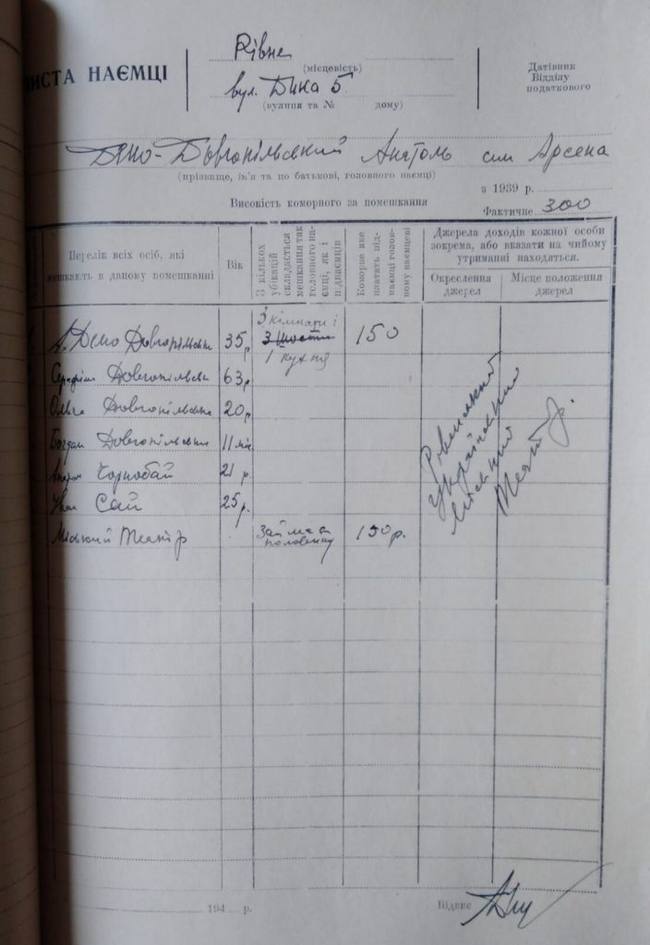 ИСТА НАЄМЦІ
Рівне
(місцевість)
вул. Дика 5.
(вулиця та № дому)
Датівник
Відділу
податкового
Демо-Довгопільський Анатоль син Арсена
(прізвище, ім'я та по батькові, головного наємці)
з 1939 р.
Високість коморного за помешкання
Фактичне 300
Перелік всіх осіб, які
мешкають в даному помешканні
Вік
З кількох
убікацій
складається
мешкання так
головного на-
ємці, як і
піднаємців
Коморне яке
платять під-
наємці голов-
ному наємцеві
Джерела доходів кожної особи
зокрема, або вказати на чийому
утриманні находяться.
Окреслення
джерел
Місце положення
джерел
А. Демо Довгопільськ 35 р. 3 кімнати і 1 кухня 150
Серафіма Довгопільськ 63 р.
Ольга Довгопільська 20 р.
Богдан Довгопільськ 11 міс.
Чорнобай 21 р.
Іван Сай 25 р.
Міський Театр Займає половину 150 р.
Рівенський
Український
Міський
Театр.
194 р.
Підпис